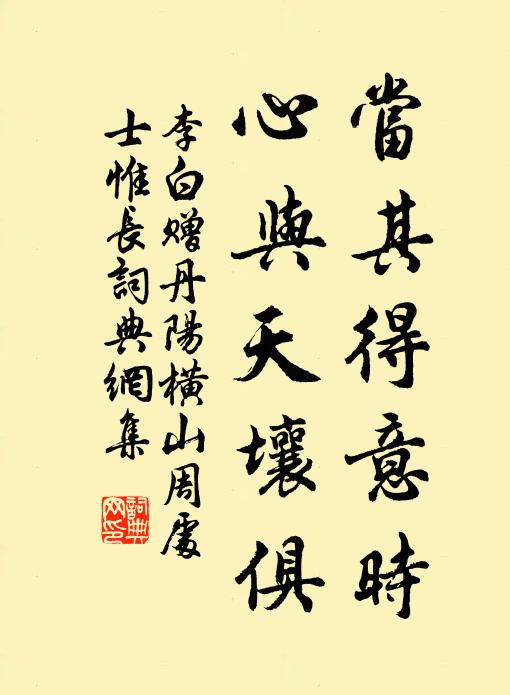 當其得意時
心與天壤俱
李白贈丹陽橫山周處
士惟長詞典網集
詞典
网印